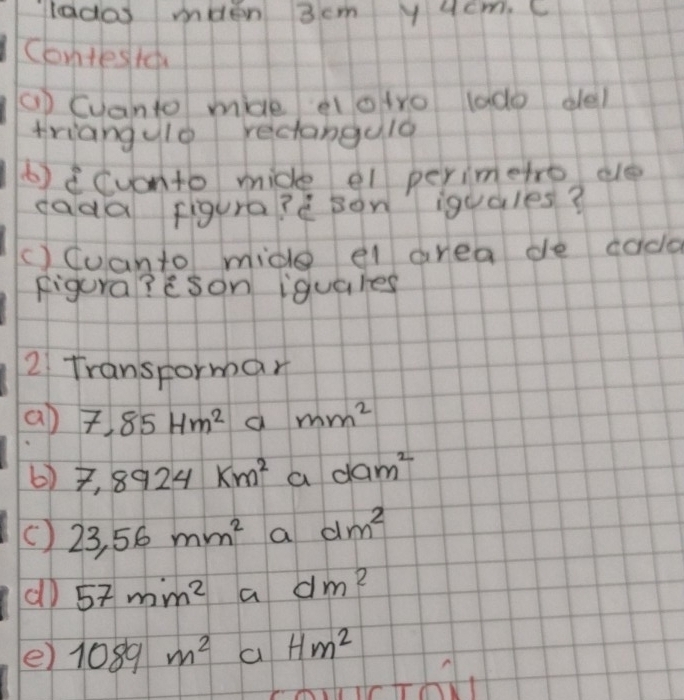 lados miden 3cm y 4cm. C
Contesta
a) Cuanto mide el otro lado del
triangulo rectangulo
b) ¿Cuanto mide el perimetro de
cada figura? ¿son iguales?
c) Cuanto mide el area de cada
figura? ¿son iguales
2 Transformar
a) 7,85 Hm² a mm²
b) 7,8924 Km² a dam²
c) 23,56 mm² a dm²
d) 57 mm² a dm²
e) 1089 m² a Hm²